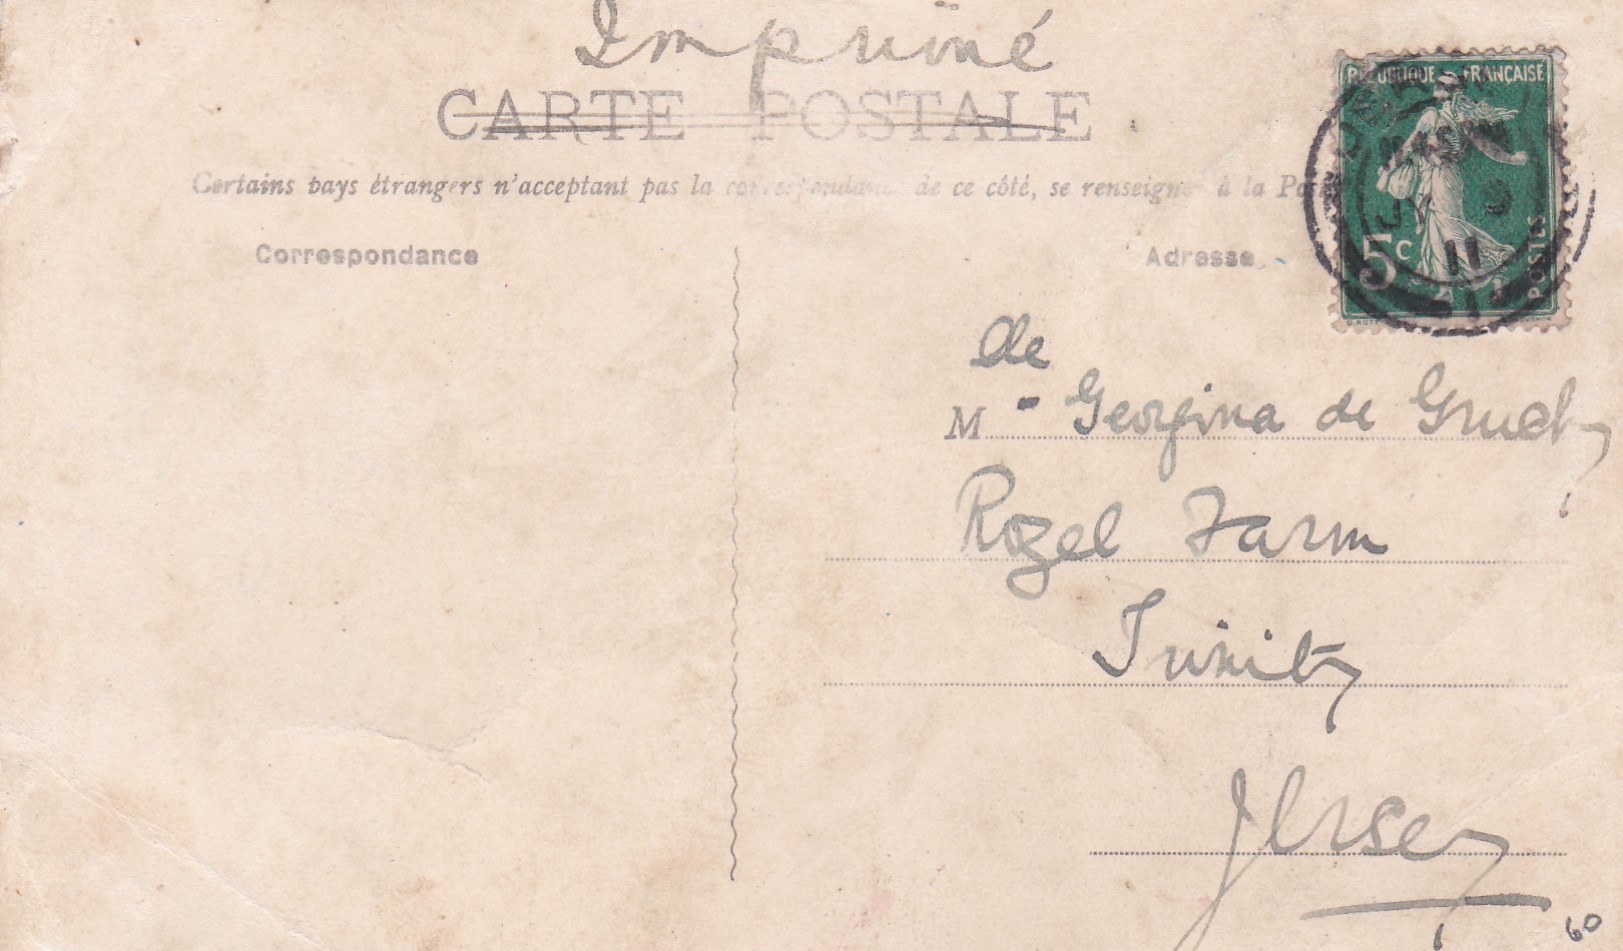 Imprimé
CARTE POSTALE
Certains pays étrangers n'acceptant pas la correspondance de ce côté, se renseigner à la
Correspondance
Adresse
RÉPUBLIQUE FRANÇAISE
5c
POSTES
JY 9
11
de
M - Georgina de Gruchy
Rozel Farm
Trinity
Jersey
60